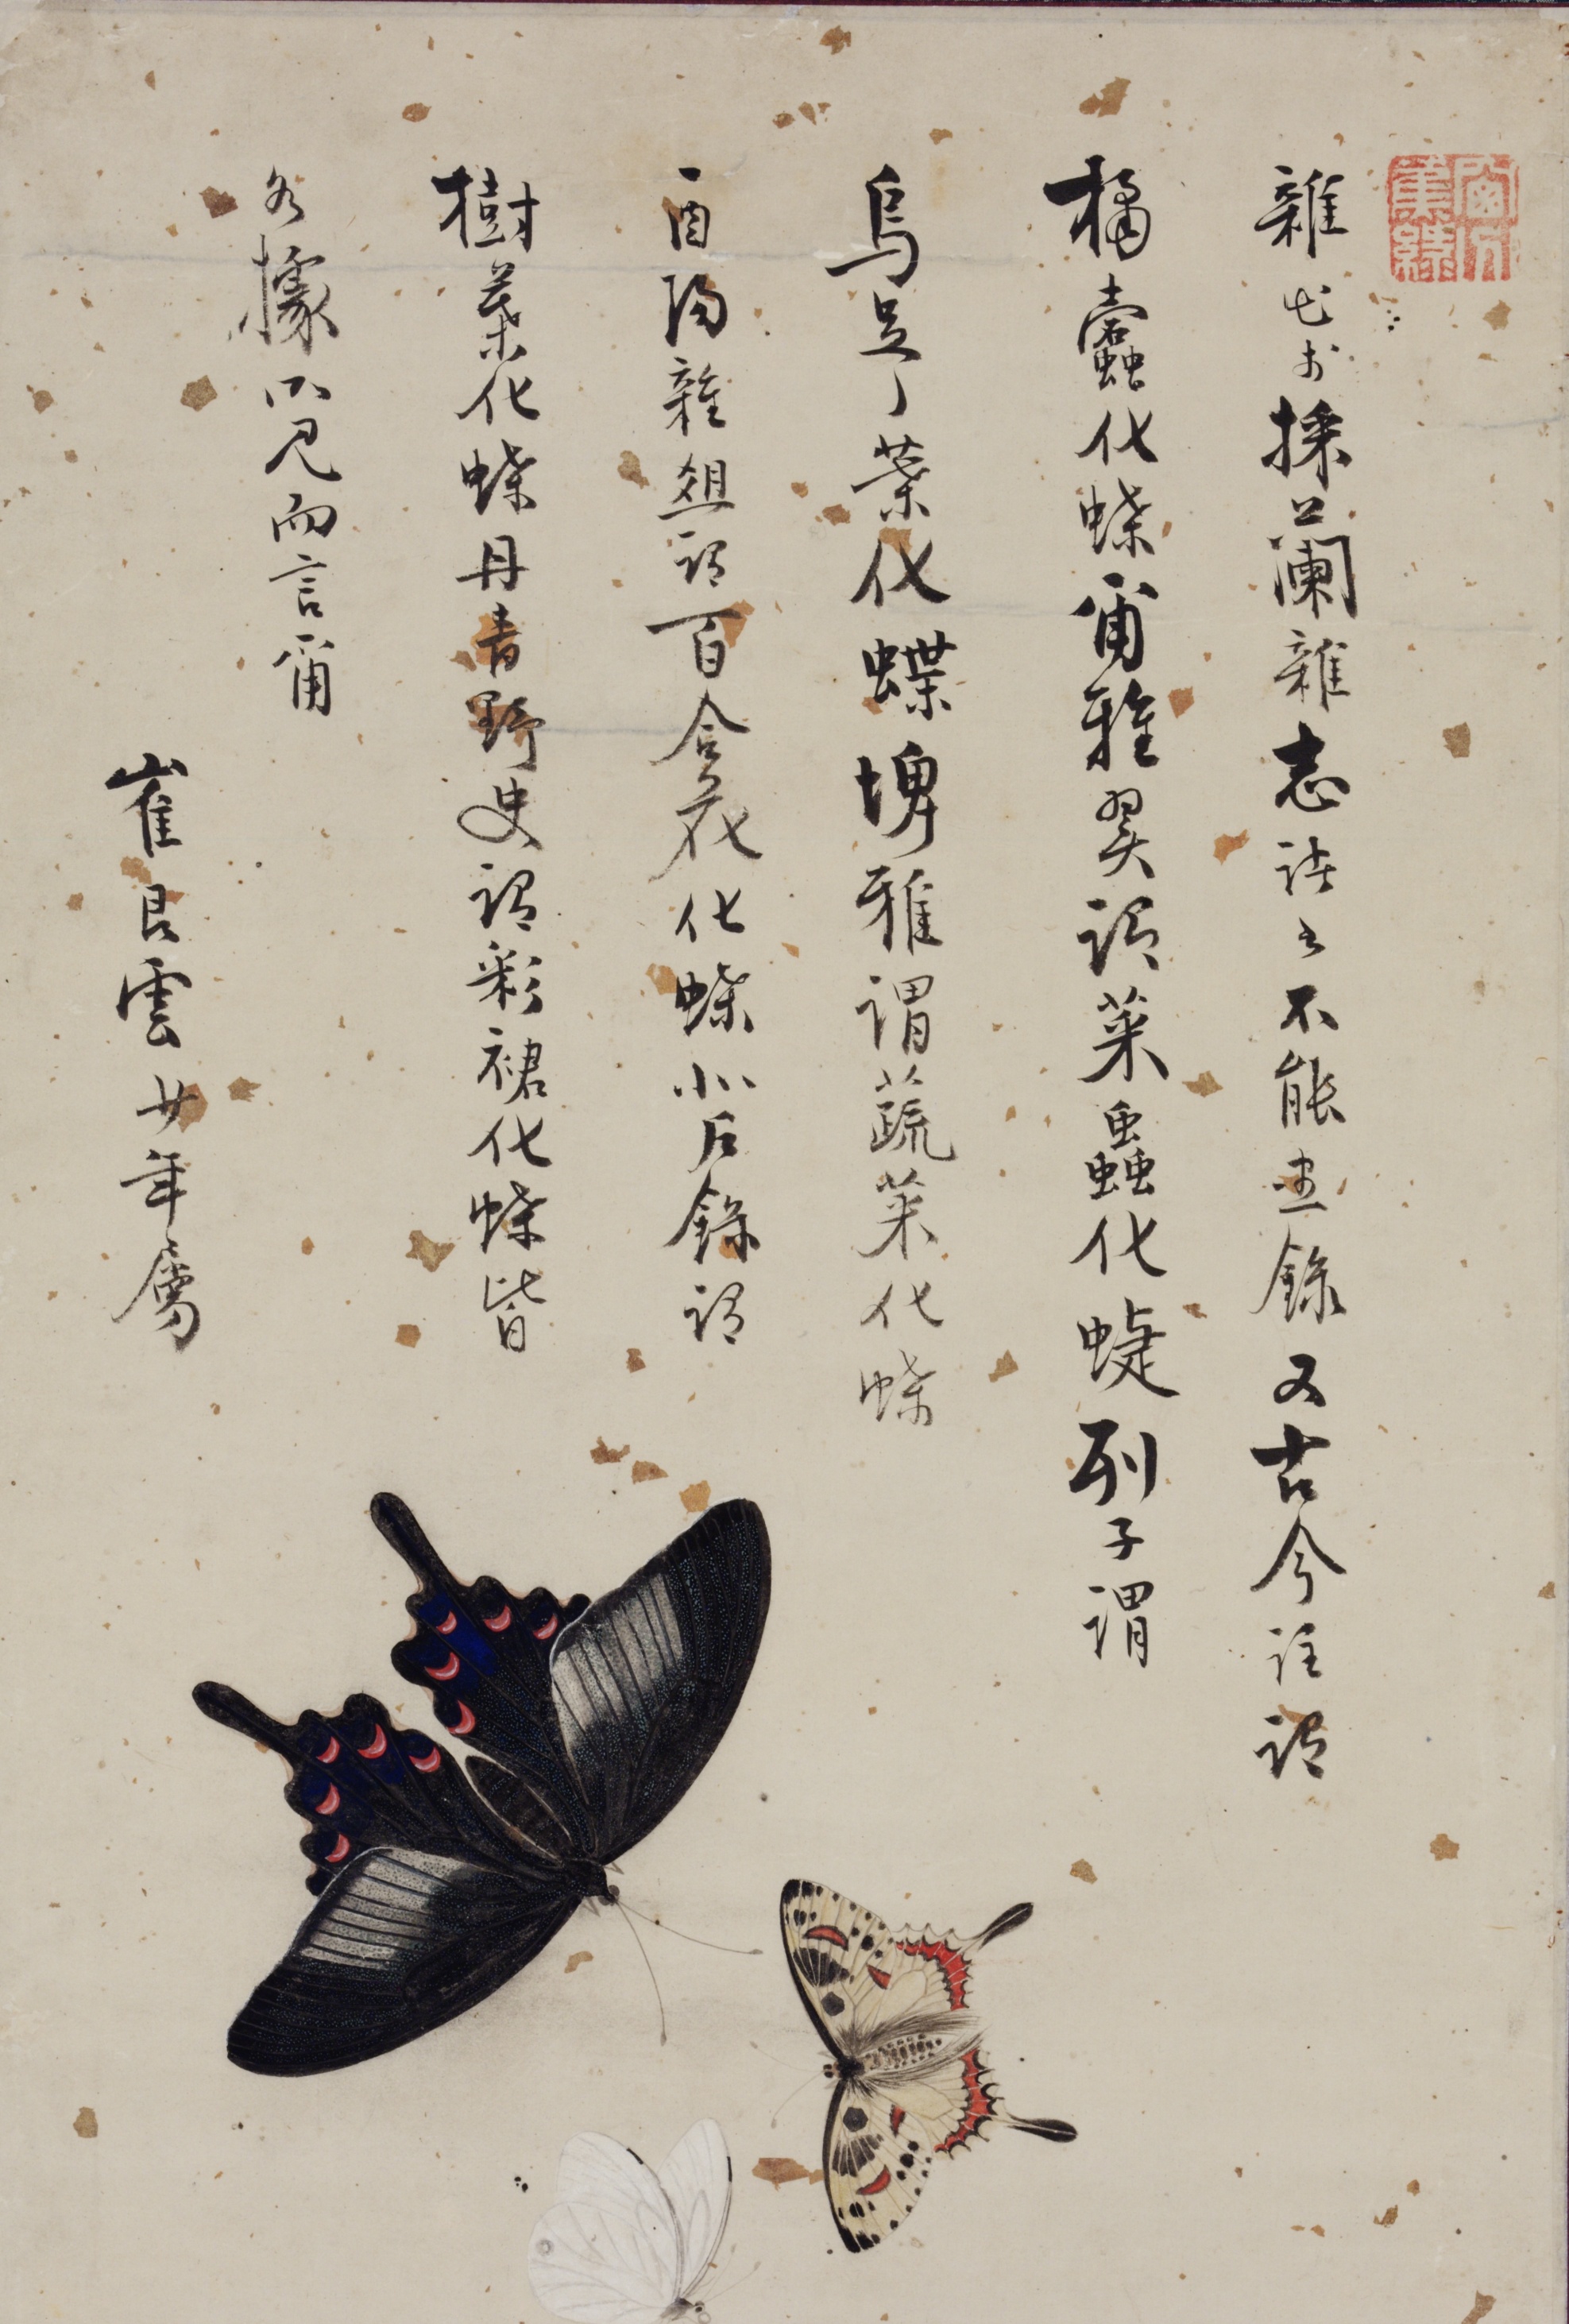 雜出於採蘭雜志諸書不能盡錄又古今註謂
橘蠹化蝶爾雅翼謂菜蟲化蜨列子謂
烏足之葉化蝶埤雅謂蔬菜化蝶
酉陽雜俎謂百合花化蝶北戶錄謂
樹葉化蝶丹青野史謂彩裙化蝶皆
各據所見而言爾
崔艮雲年屬